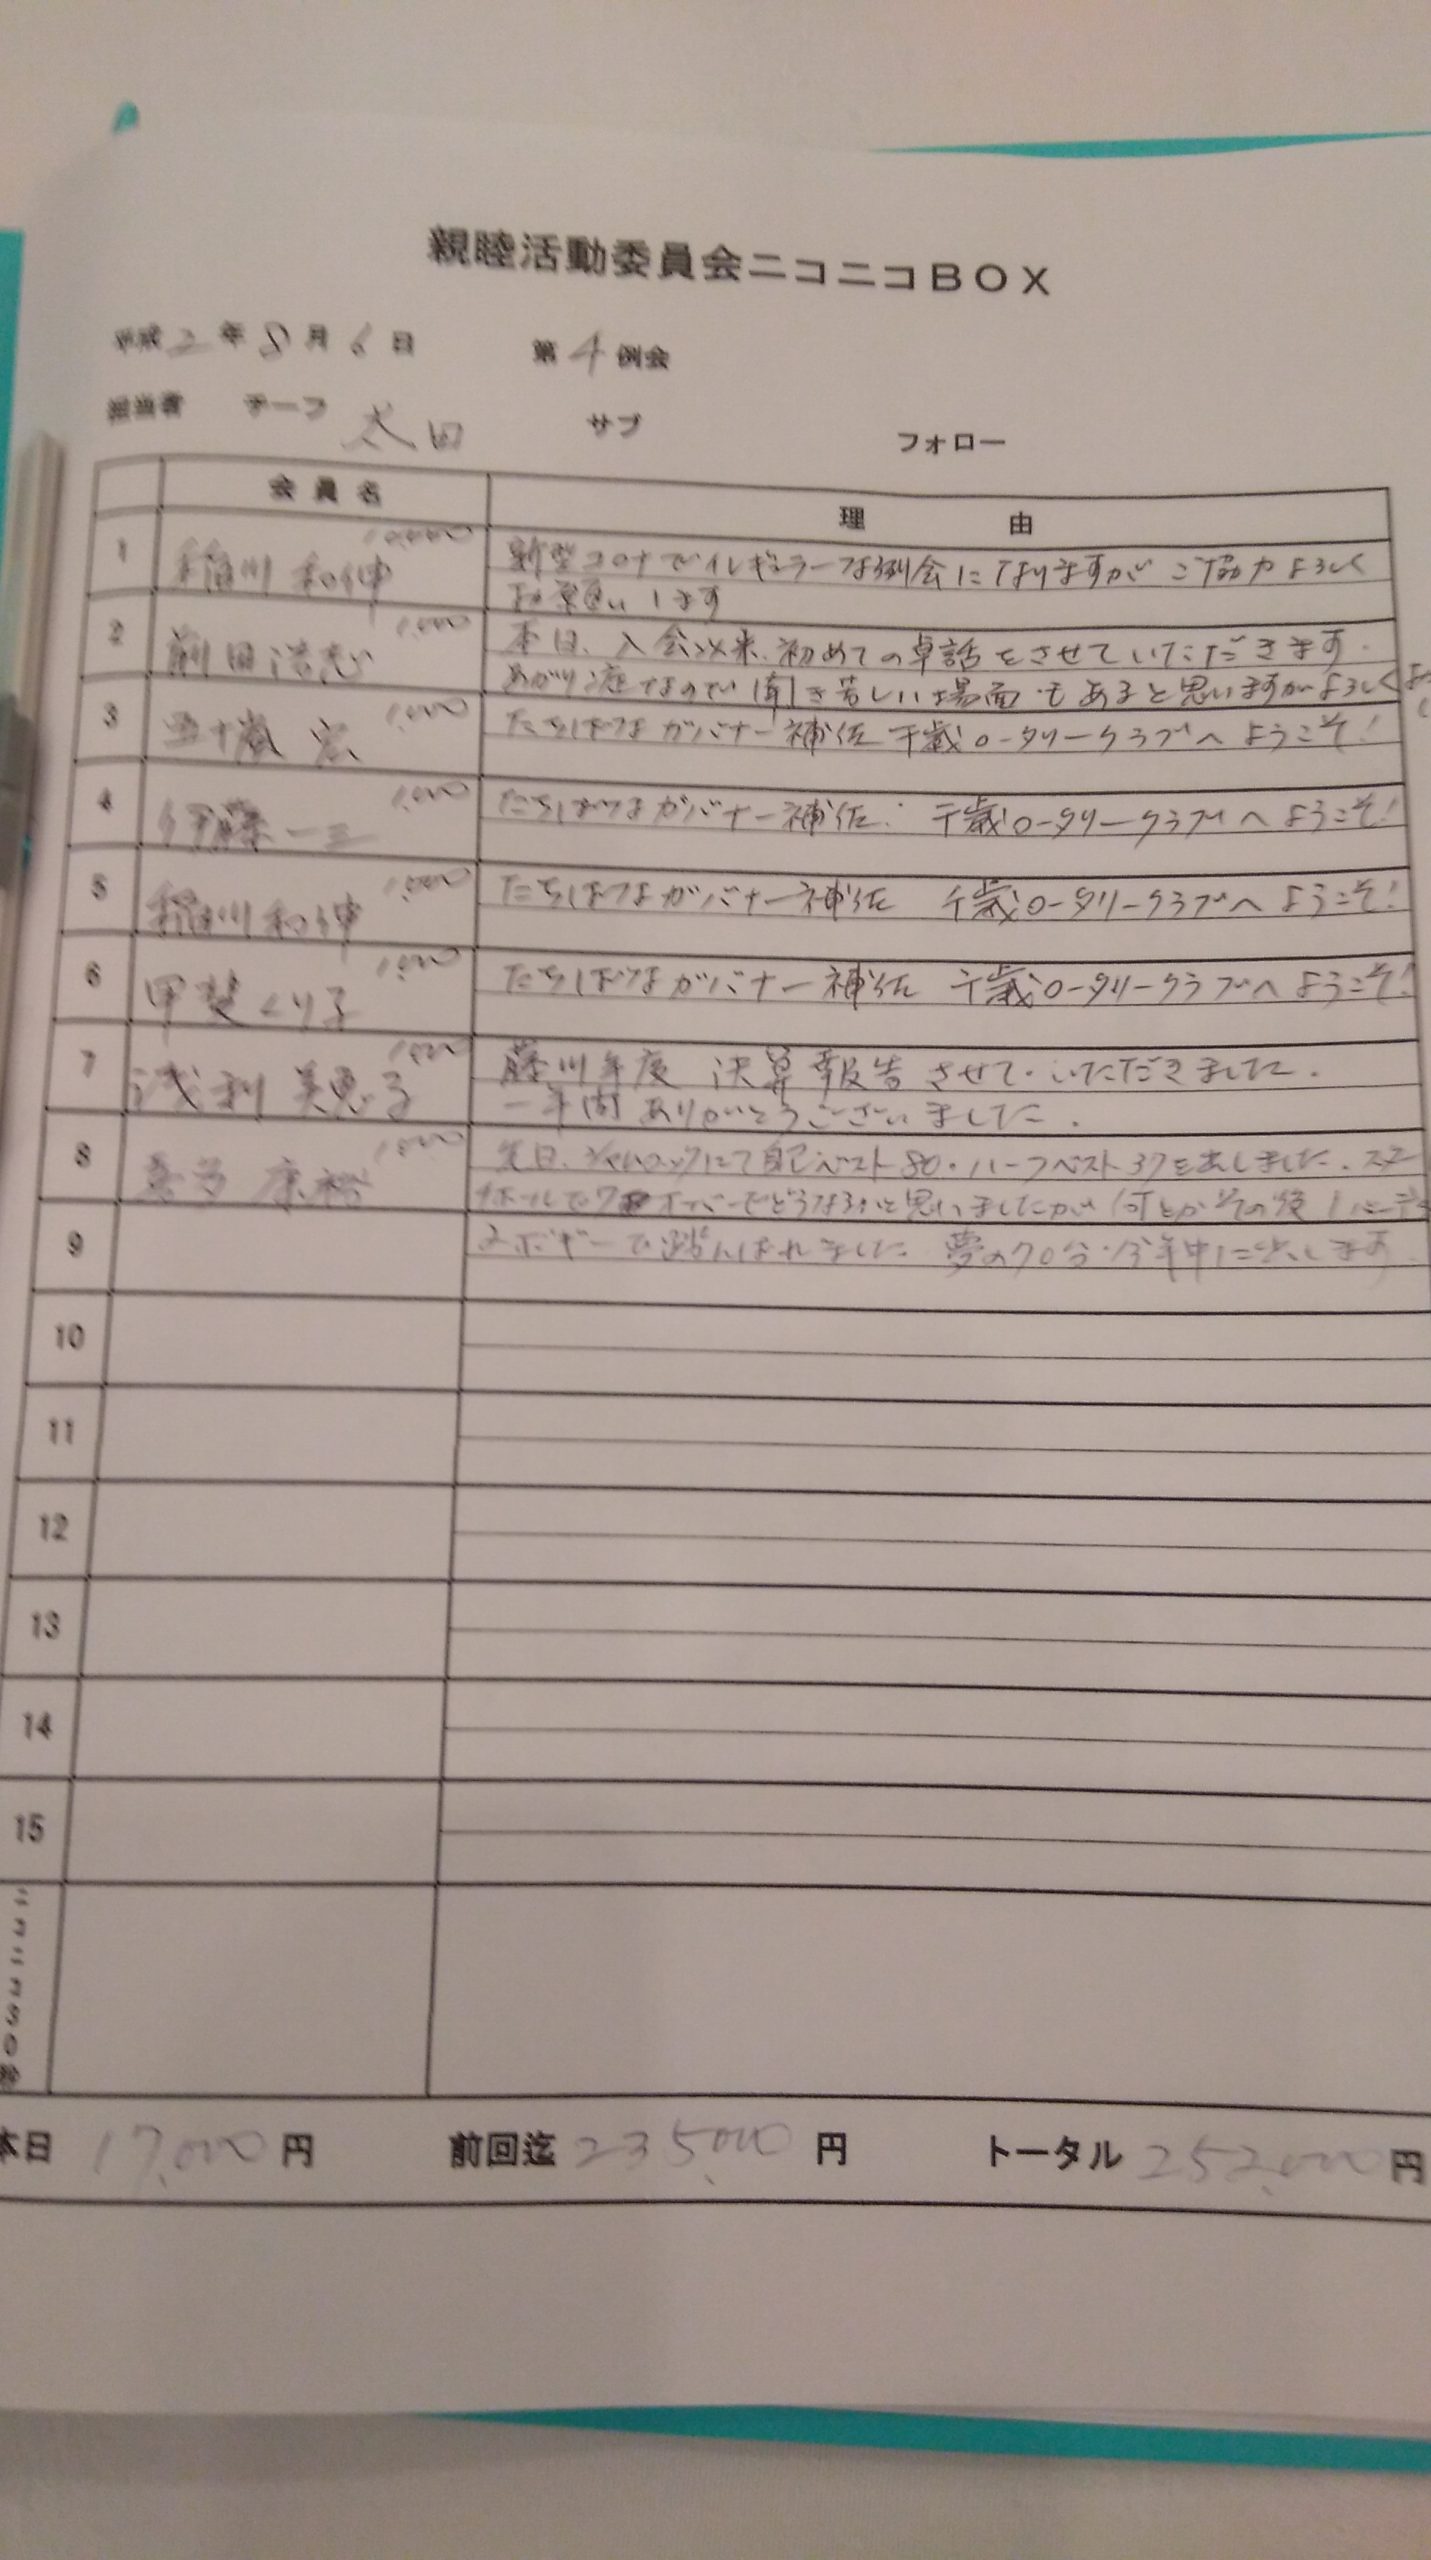 親睦活動委員会ニコニコBOX
平成 2 年 8 月 6 日 第 4 例会
担当者 チーフ 太田 サブ フォロー
会員名 理由
1 稲川 和伸 10,000 新型コロナでイレギュラーな例会になりますがご協力よろしく
お願いします
2 前田浩志 1,000 本日、入会以来、初めての卓話をさせていただきます.
あがり症なので聞き苦しい場面もあると思いますがよろしく
3 五十嵐 宏 1,000 たちばなガバナー補佐 千歳ロータリークラブへようこそ!
4 伊藤一三 1,000 たちばなガバナー補佐. 千歳ロータリークラブへようこそ!
5 稲川和伸 1,000 たちばなガバナー補佐 千歳ロータリークラブへようこそ!
6 甲斐くり子 1,000 たちばなガバナー補佐 千歳ロータリークラブへようこそ!
7 浅利 美恵子 1,000 藤川年度 決算報告させていただきました.
一年間ありがとうございました.
8 康裕 1,000 先日、シャムロックにて自己ベスト80・ハーフベスト37を出しました.
オーバーでどうなるかと思いましたが何とかその後1バーディ
9 2ボギーで踏んばれました 夢の70台・今年中に出します.
10
11
12
13
14
15
本日 17,000 円 前回迄 235,000 円 トータル 252,000 円